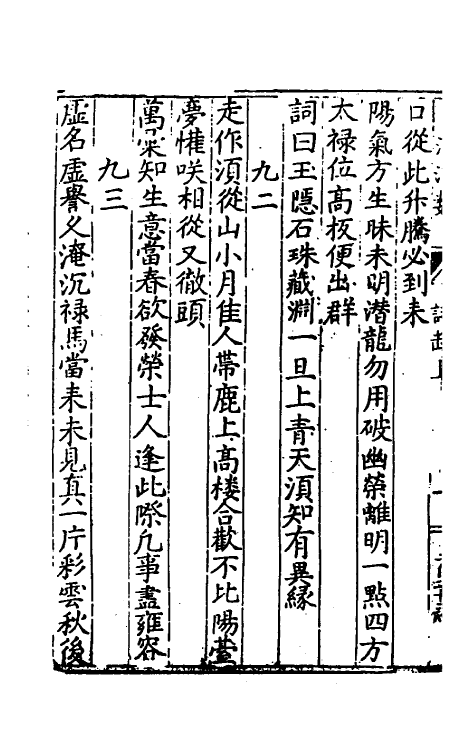 口從此升騰必到未
陽氣方生昧未明潜龍勿用破幽榮離明一點四方
太禄位髙扳便出群
詞曰玉隱石珠藏淵一旦上青天湏知有異縁
九二
走作湏從山小月佳人帶鹿上髙楼合歡不比陽臺
夢慛咲相從又徹頭
萬朶知生意當春欲發榮士人逢此際凢事盡雍容
九三
虚名虚譽乆淹沉禄馬當耒未見真一片彩雲秋後